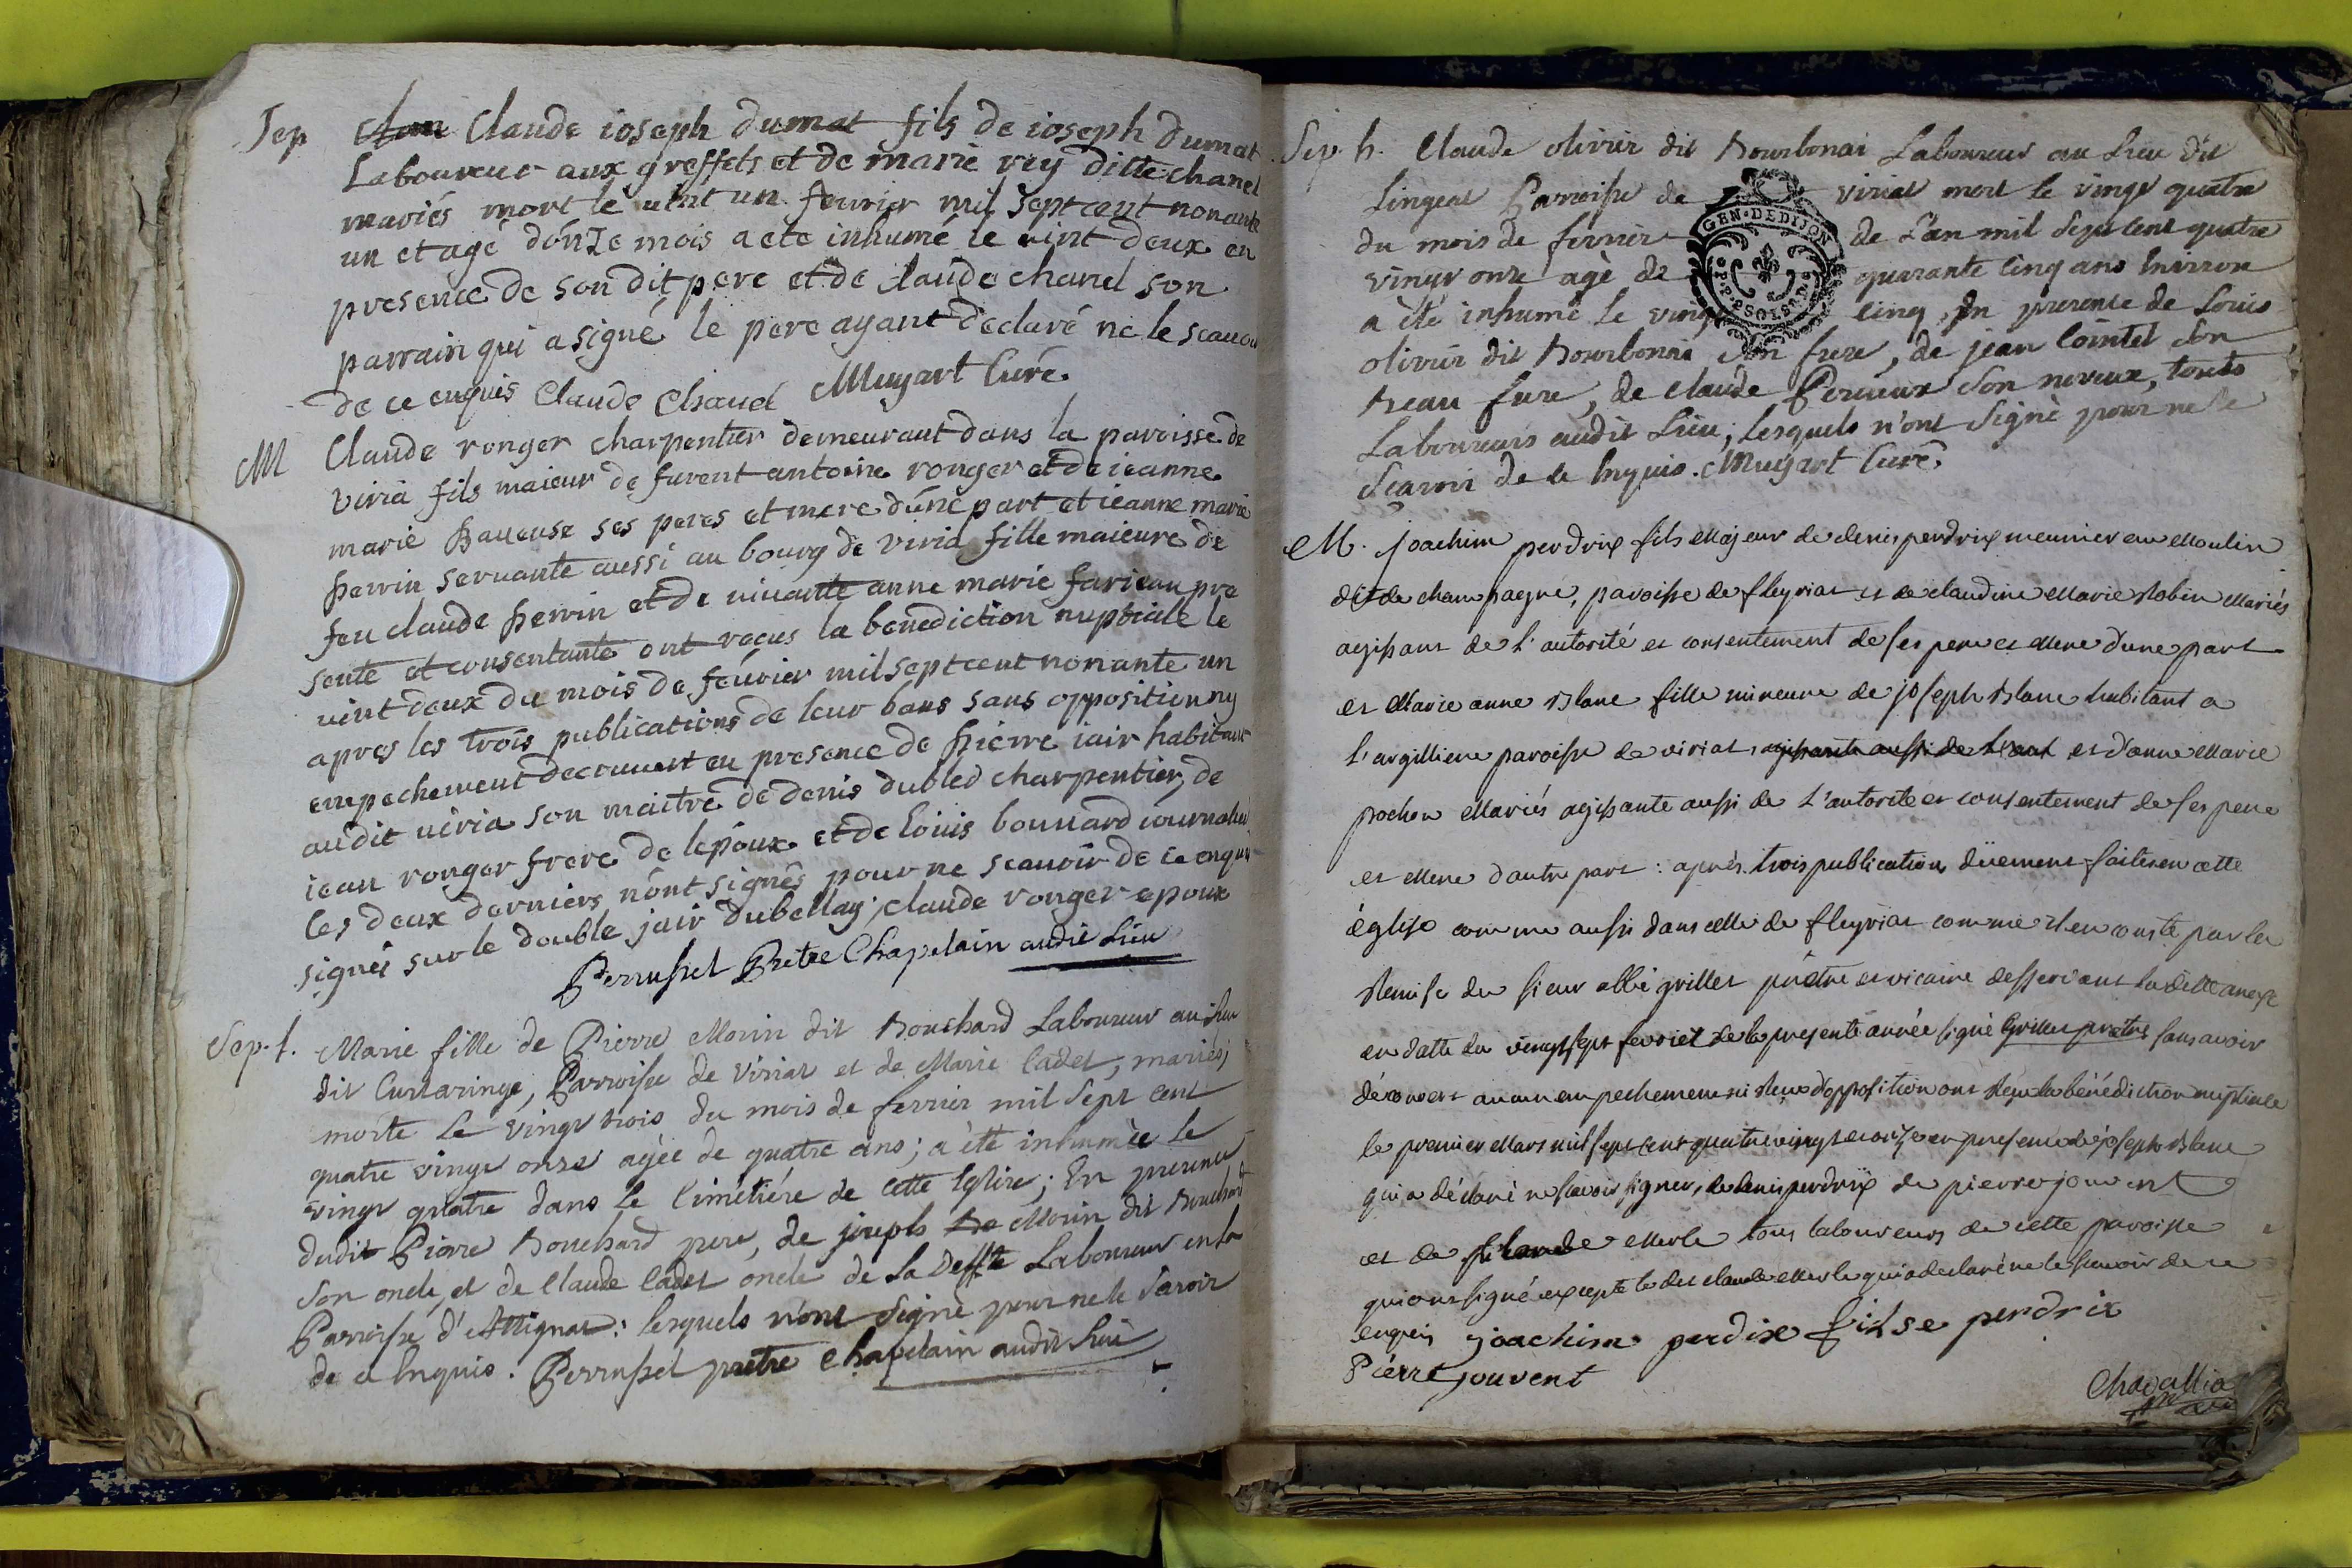 Sep Claude ioseph dumat fils de ioseph dumat
Laboureur aux greffets et de marie rey ditte chanel
mariés mort le vint un fevrier mil sept cent nonante
un et agé d'onze mois a ete inhumé le vint deux en
presence de son dit pere et de claude chanel son
parrain qui a signé le pere ayant declaré ne le scauoir
de ce enquis Claude Chanel Mugart Curé.
M Claude ronger charpentier demeurant dans la paroisse de
viria fils maieur de furent antoine ronger et de ieanne
marie ses peres et mere d'une part et ieanne marie
perrin seruante aussi au bourg de viria fille maieure de
feu claude perrin et de uiuante anne marie farieau pre
sente et consentante ont recus la benediction nuptiale le
vint deux du mois de féurier mil sept cent nonante un
apres les trois publications de leur bans sans opposition ny
empechement decouuert en presence de pierre iair habitant
audit uiria son maitre de denis dubled charpentier, de
iean ronger frere de lepoux et de louis bouuard iournalier
les deux derniers n'ont signés pour ne scauoir de ce enquis
signés sur le double jair dubellay; claude ronger epoux
Perrussel Prêtre Chapelain audit Lieu
Sep. f. Marie fille de Pierre Morin dit Bouchard Laboureur au lieu
dit Curtaringe, Parroisse de Viriat et de Marie Cadet, mariés;
morte Le vingt trois du mois de fevrier mil Sept cent
quatre vingt onze agée de quatre ans; a été inhumée le
vingt quatre dans le Cimétiére de cette Eglise; En presence
dudit Pierre Bouchard pere, de joseph Morin dit Bouchard
Son oncle, et de Claude Cadet oncle de La Deffte Laboureur en la
Parroisse d'Attignat: lesquels n'ont Signé pour ne le Savoir
de ce Enquis. Perrussel prêtre Chapelain audit Lieu
Sep. h. Claude olivier dit Bourbonai Laboureur au Lieu dit
Lingeat Parroisse de viriat mort le vingt quatre
du mois de fevrier de L'an mil Sept cent quatre
vingt onze agé de quarante cinq ans Environ
a été inhumé le vingt cinq, En presence de Louis
olivier dit Bourbonai Son frere, de jean Comtet Son
Beau frere, de claude Perieux Son neveux, touts
Laboureurs audit Lieu; lesquels n'ont Signé pour ne le
Scavoir de ce Enquis. Mugart Curé.
GEN. DE DIJON
M. joachim perdrix fils Majeur de denis perdrix meunier au Moulin
dit de champagne, paroisse de fleyriat et de claudine Marie Robin Mariés
agissant de l'autorité et consentement de ses pere et Mere d'une part
et Marie anne Blanc fille mineure de joseph Blanc habitant a
l'argilliere paroisse de viriat, agissante aussi de l'aut et d'anne Marie
pochon Mariés agissante aussi de L'autorité et consentement de ses pere
et Mere d'autre part: aprés trois publication düement faites en cette
église comme aussi dans celle de fleyriat comme il en conste par la
Remise du sieur abbé grillet prêtre et vicaire desservant la ditte anexe
en datte du vingt sept fevrier de la presente année signé Grillet prêtre sans avoir
découvert aucun empechement ni Reçu d'opposition ont Reçu la bénédiction nuptiale
le premier Mars mil sept cent quatre vingt et onze en presence de joseph Blanc
qui a déclaré ne sçavoir signer, de denis perdrix de pierre jouvent
et de claude Merle tous laboureurs de cette paroisse
qui ont signé excepté le dit claude Merle qui a declaré ne le sçavoir de ce
enquis joachim perdix perdrix
Piérre jouvent